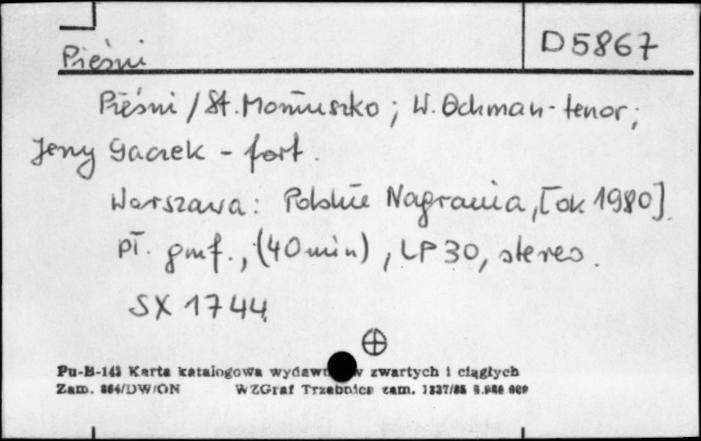 D 5867
Pieśni
Pieśni / St. Moniuszko ; W. Ochman - tenor ;
Jerzy Gaczek - fort.
Warszawa : Polskie Nagrania, [ok 1980].
Pł. gmf., (40 min), LP 30, stereo.
SX 1744
Pu-B-143 Karta katalogowa zwartych i ciągłych
Zam. 864/DW/ON WZGraf Trzebnica zam. 1337/88